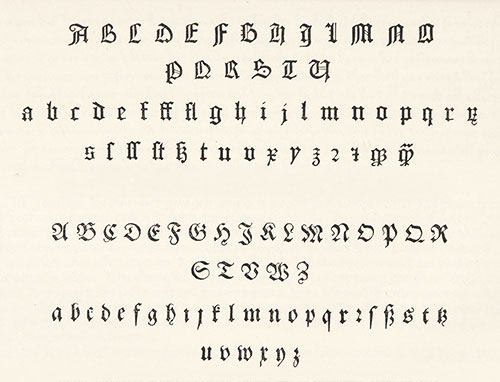 A B C D E F G H I L M N O
P Q R S T U
a b c d e f ff fl g h i j l m n o p q r
s ſ ſſ ſt tz t u v x y z ꝛ
A B C D E F G H J K L M N O P Q R
S T V W Z
a b c d e f g h i j k l m n o p q r ꝛ ſ ß s t tz
u v w x y z